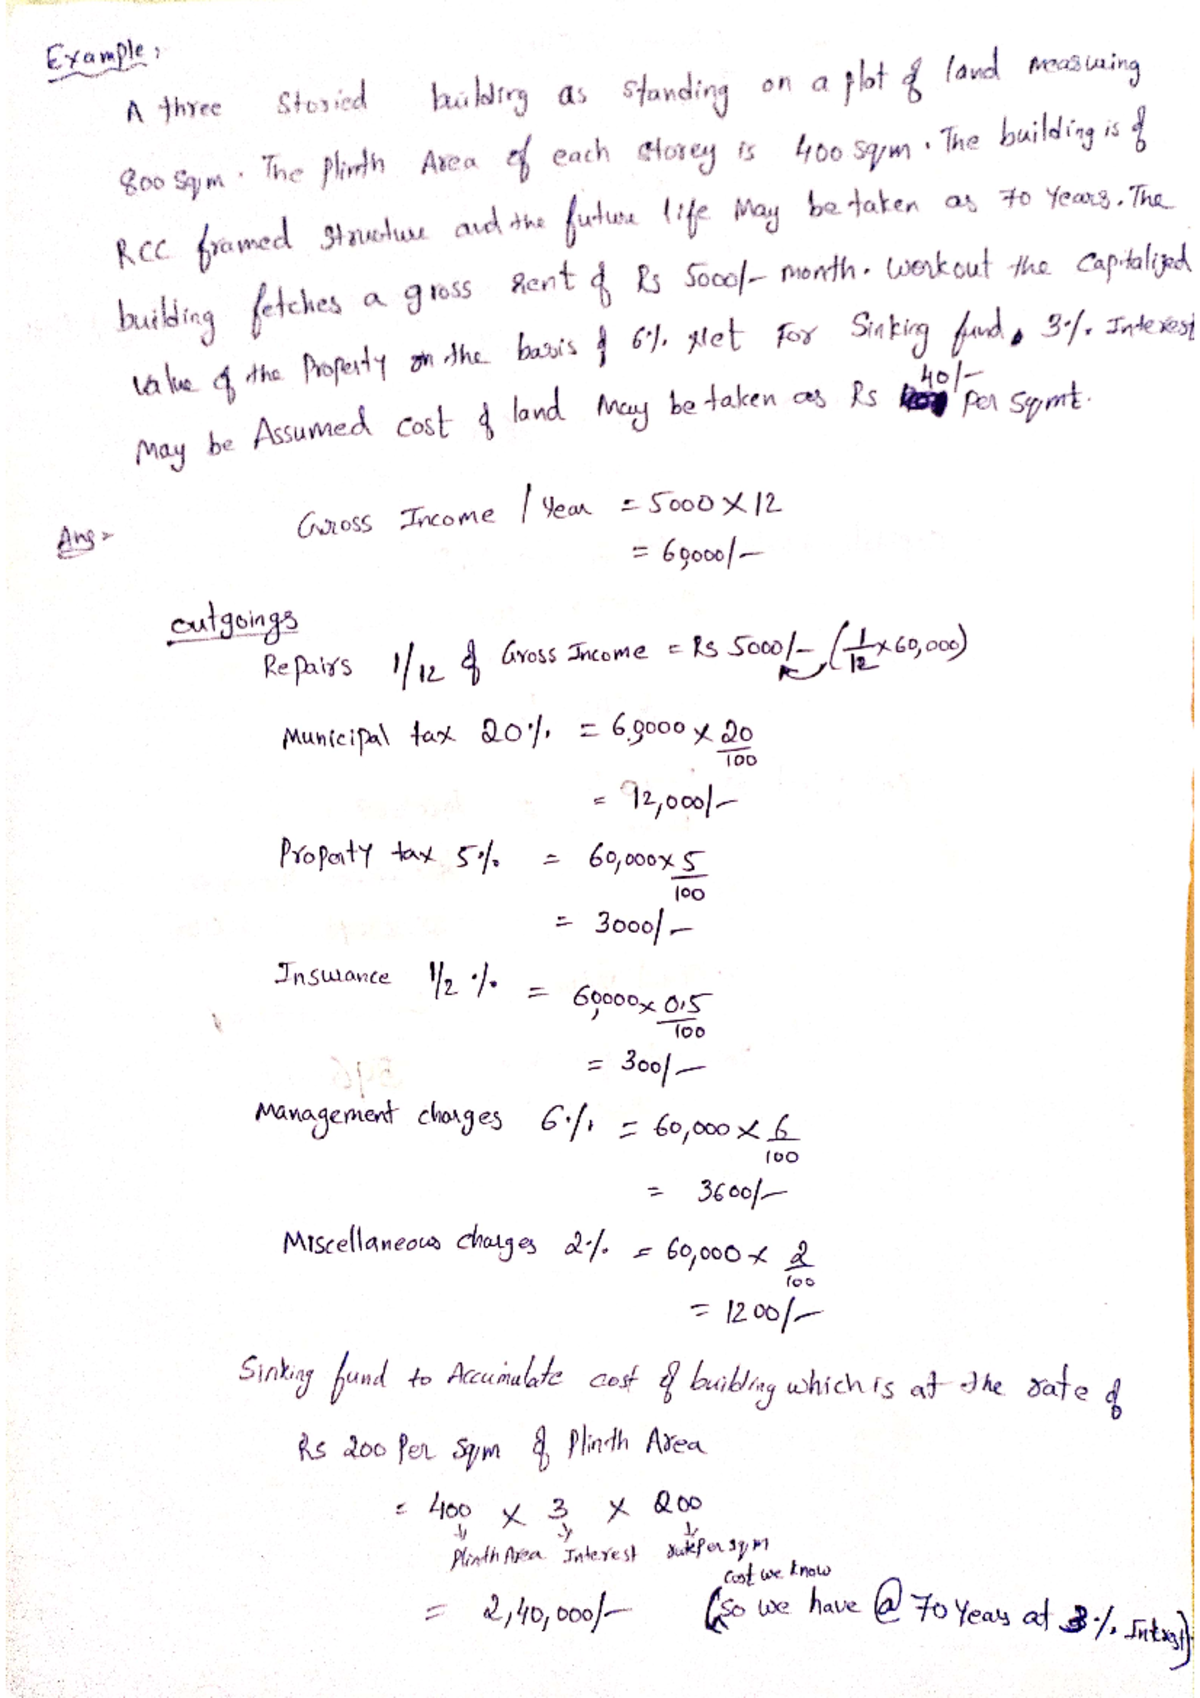 Example,
A three Storied building as Standing on a plot of land measuring
800 Sqm. The Plinth Area of each storey is 400 sqm. The building is of
RCC framed Structure and the future life May be taken as 70 Years. The
building fetches a gross rent of Rs 5000/- month. Workout the Capitalized
value of the Property on the basis of 6% Net For Sinking fund, 3% Interest
40/-
May be Assumed cost of land May be taken as Rs Per Sqmt.
Ans:- Gross Income / Year = 5000 X 12
= 60,000/-
outgoings
Repairs 1/12 of Gross Income = Rs 5000/- (1/12 x 60,000)
Municipal tax 20% = 60,000 x 20/100
= 12,000/-
Property tax 5% = 60,000 x 5/100
= 3000/-
Insurance 1/2 % = 60,000 x 0.5/100
= 300/-
Management charges 6% = 60,000 x 6/100
= 3600/-
Miscellaneous charges 2% = 60,000 x 2/100
= 1200/-
Sinking fund to Accumulate cost of building which is at the rate of
Rs 200 Per Sqm of Plinth Area
= 400 X 3 X 200
Plinth Area Interest per sqm
cost we know
= 2,40,000/- (so we have @ 70 Years at 3% Intrest)